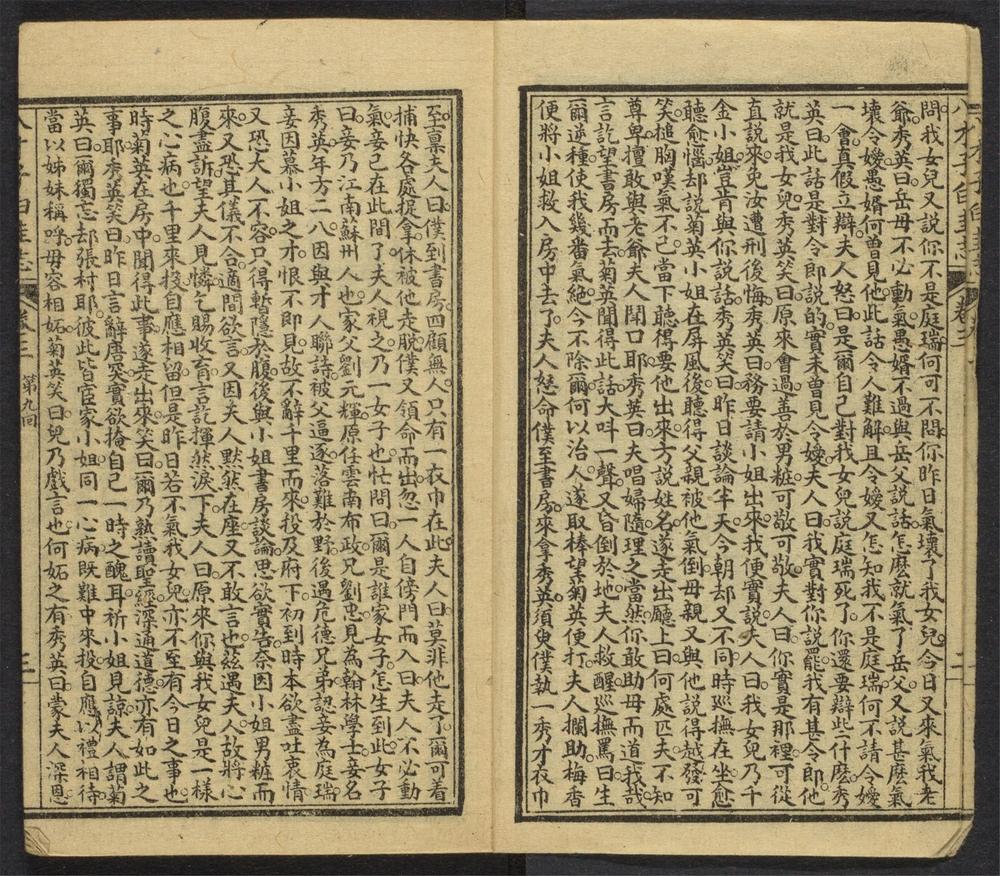 問我女兒又說你不是庭瑞何可不問你昨日氣壞了我女兒今日又來氣我老
爺秀英曰岳母不必動氣愚婿不過與岳父說話怎麽就氣了岳父又說甚麽氣
壞令嬡愚婿何曾見他此話令人難解且令嬡又怎知我不是庭瑞何不請令嬡
一會真假立辯夫人怒曰是爾自己對我女兒說庭瑞死了你還要辯些什麽秀
英曰此話是對令郎說的實未曾見令嬡夫人曰我實對你說罷我有甚令郎他
就是我女兒秀英笑曰原來會過善於男粧可敬可敬夫人曰你實是那裡可從
直說來免汝遭刑後悔秀英曰務要請小姐出來我便實說夫人曰我女兒乃千
金小姐豈肯與你說話秀英笑曰昨日談論半天今朝却又不同時巡撫在坐愈
聽愈惱却說菊英小姐在屏風後聽得父親被他氣倒母親又與他說得越發可
笑搥胸嘆氣不已當下聽得要他出來方說姓名遂走出廳上曰何處匹夫不知
尊卑擅敢與老爺夫人鬥口耶秀英曰夫唱婦隨理之當然你敢助母而道我哉
言訖望書房而去菊英聞得此話大呌一聲又昏倒於地夫人救醒巡撫罵曰生
爾逆種使我幾番氣絶今不除爾何以治人遂取棒望菊英便打夫人攔助梅香
便將小姐救入房中去了夫人怒命僕至書房來拿秀英須臾僕執一秀才衣巾
至禀夫人曰僕到書房四顧無人只有一衣巾在此夫人曰莫非他走了爾可着
捕快各處捉拿休被他走脫僕又領命而出忽一人自傍門而入曰夫人不必動
氣妾已在此間了夫人視之乃一女子也忙問曰爾是誰家女子怎生到此女子
曰妾乃江南蘇州人也家父劉元輝原任雲南布政兄劉忠見為翰林學士妾名
秀英年方二八因與才人聯詩被父逼逐落難於野後遇危德兄弟認妾為庭瑞
妾因慕小姐之才恨不即見故不辭千里而來投及府下初到時本欲盡吐衷情
又恐大人不容只得暫隱於腹後與小姐書房談論思欲實告奈因小姐男粧而
來又恐其儀不合適間欲言又因夫人默然在座又不敢言也茲遇夫人故將心
腹盡訴望夫人見憐乞賜收畜言訖揮然淚下夫人曰原來你與我女兒是一樣
之心病也千里來投自應相留但是昨日若不氣我女兒亦不至有今日之事也
時菊英在房中聞得此事遂走出來笑曰爾乃熟讀聖經深通道德亦有如此之
事耶秀英笑曰昨日言辭唐突實欲掩自己一時之醜耳祈小姐見諒夫人謂菊
英曰爾獨忘却張村耶彼此皆宦家小姐同一心病既難中來投自應以禮相待
當以姊妹稱呼毋容相妬菊英笑曰兒乃戲言也何妬之有秀英曰蒙夫人深恩
卷三
第九回
三
卷三
二